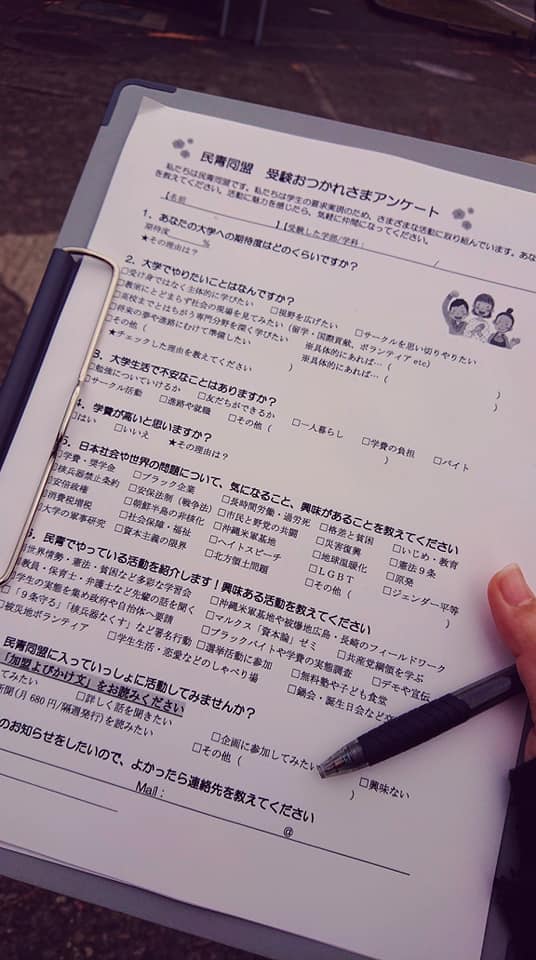 民青同盟 受験おつかれさまアンケート
私たちは民青同盟です。私たちは学生の要求実現のため、さまざまな活動に取り組んでいます。あな
を教えてください。活動に魅力を感じたら、気軽に仲間になってください。
【名前 】【受験した学部/学科: (
1. あなたの大学への期待度はどのくらいですか?
期待度 %
★その理由は?
2. 大学でやりたいことはなんですか?
□受け身ではなく主体的に学びたい □視野を広げたい □サークルを思い切りやりたい
□教室にとどまらず社会の現場を見てみたい(留学・国際貢献、ボランティア etc)
□高校までとはちがう専門分野を深く学びたい ※具体的にあれば…( )
□将来の夢や進路にむけて準備したい ※具体的にあれば…( )
□その他( )
★チェックした理由を教えてください
3. 大学生活で不安なことはありますか?
□勉強についていけるか □友だちができるか □一人暮らし □学費の負担 □バイト
□サークル活動 □進路や就職 □その他( )
4. 学費が高いと思いますか?
□はい □いいえ ★その理由は?
5. 日本社会や世界の問題について、気になること、興味があることを教えてください
□学費・奨学金 □ブラック企業 □長時間労働・過労死 □格差と貧困 □いじめ・教育
□核兵器禁止条約 □安保法制(戦争法) □市民と野党の共闘 □災害復興 □憲法9条
□安倍政権 □朝鮮半島の非核化 □沖縄米軍基地 □地球温暖化 □原発
□消費税増税 □社会保障・福祉 □ヘイトスピーチ □LGBT □ジェンダー平等
□大学の軍事研究 □資本主義の限界 □北方領土問題 □その他( )
6. 民青でやっている活動を紹介します!興味ある活動を教えてください
□世界情勢・憲法・貧困など多彩な学習会 □沖縄米軍基地や被爆地広島・長崎のフィールドワーク
□教員・保育士・弁護士など先輩の話を聞く □マルクス「資本論」ゼミ □共産党綱領を学ぶ
□学生の実態を集め政府や自治体へ要請 □ブラックバイトや学費の実態調査 □デモや宣伝
□「9条守る」「核兵器なくす」など署名行動 □選挙活動に参加 □無料塾や子ども食堂
□被災地ボランティア □学生生活・恋愛などのしゃべり場 □鍋会・誕生日会など交
民青同盟に入っていっしょに活動してみませんか?
「加盟よびかけ文」をお読みください
てみたい □詳しく話を聞きたい □企画に参加してみたい □興味ない
新聞(月680円/隔週発行)を読みたい □その他( )
のお知らせをしたいので、よかったら連絡先を教えてください
Mail: @